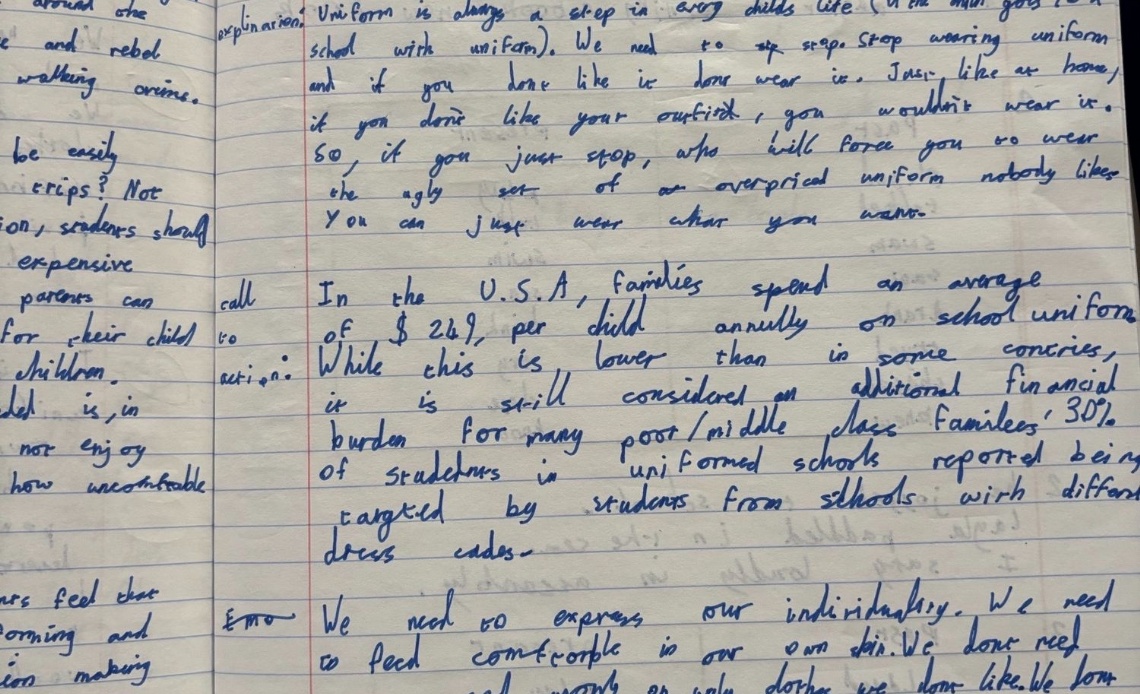 around the
e and rebel
walking
be easily
trips? Not
ion, students should
expensive
parents can
for their child
children.
ded is, in
not enjoy
how uncomftable
nts feel that
orming and
ion making
explination:
Uniform is always a step in every childs life
school with uniform). We need to stop. Stop wearing uniform
and if you dont like it dont wear it. Just like at home,
if you don't like your outfit, you wouldn't wear it.
So, if you just stop, who will force you to wear
the ugly set of overpriced uniform nobody likes
You can just wear what you want.
call
to
action:
In the U.S.A, families spend an average
of $ 249, per child annully on school uniform
While this is lower than in some contries,
it is still considered an additional financial
burden for many poor/middle class families, 30%
of studehnts in uniformed schools reported being
targted by students from schools with differt
dress codes.
Emo
We need to express our individuality. We need
to feed comftorble in our own skin. We dont need
only clothes we dont like. We dont